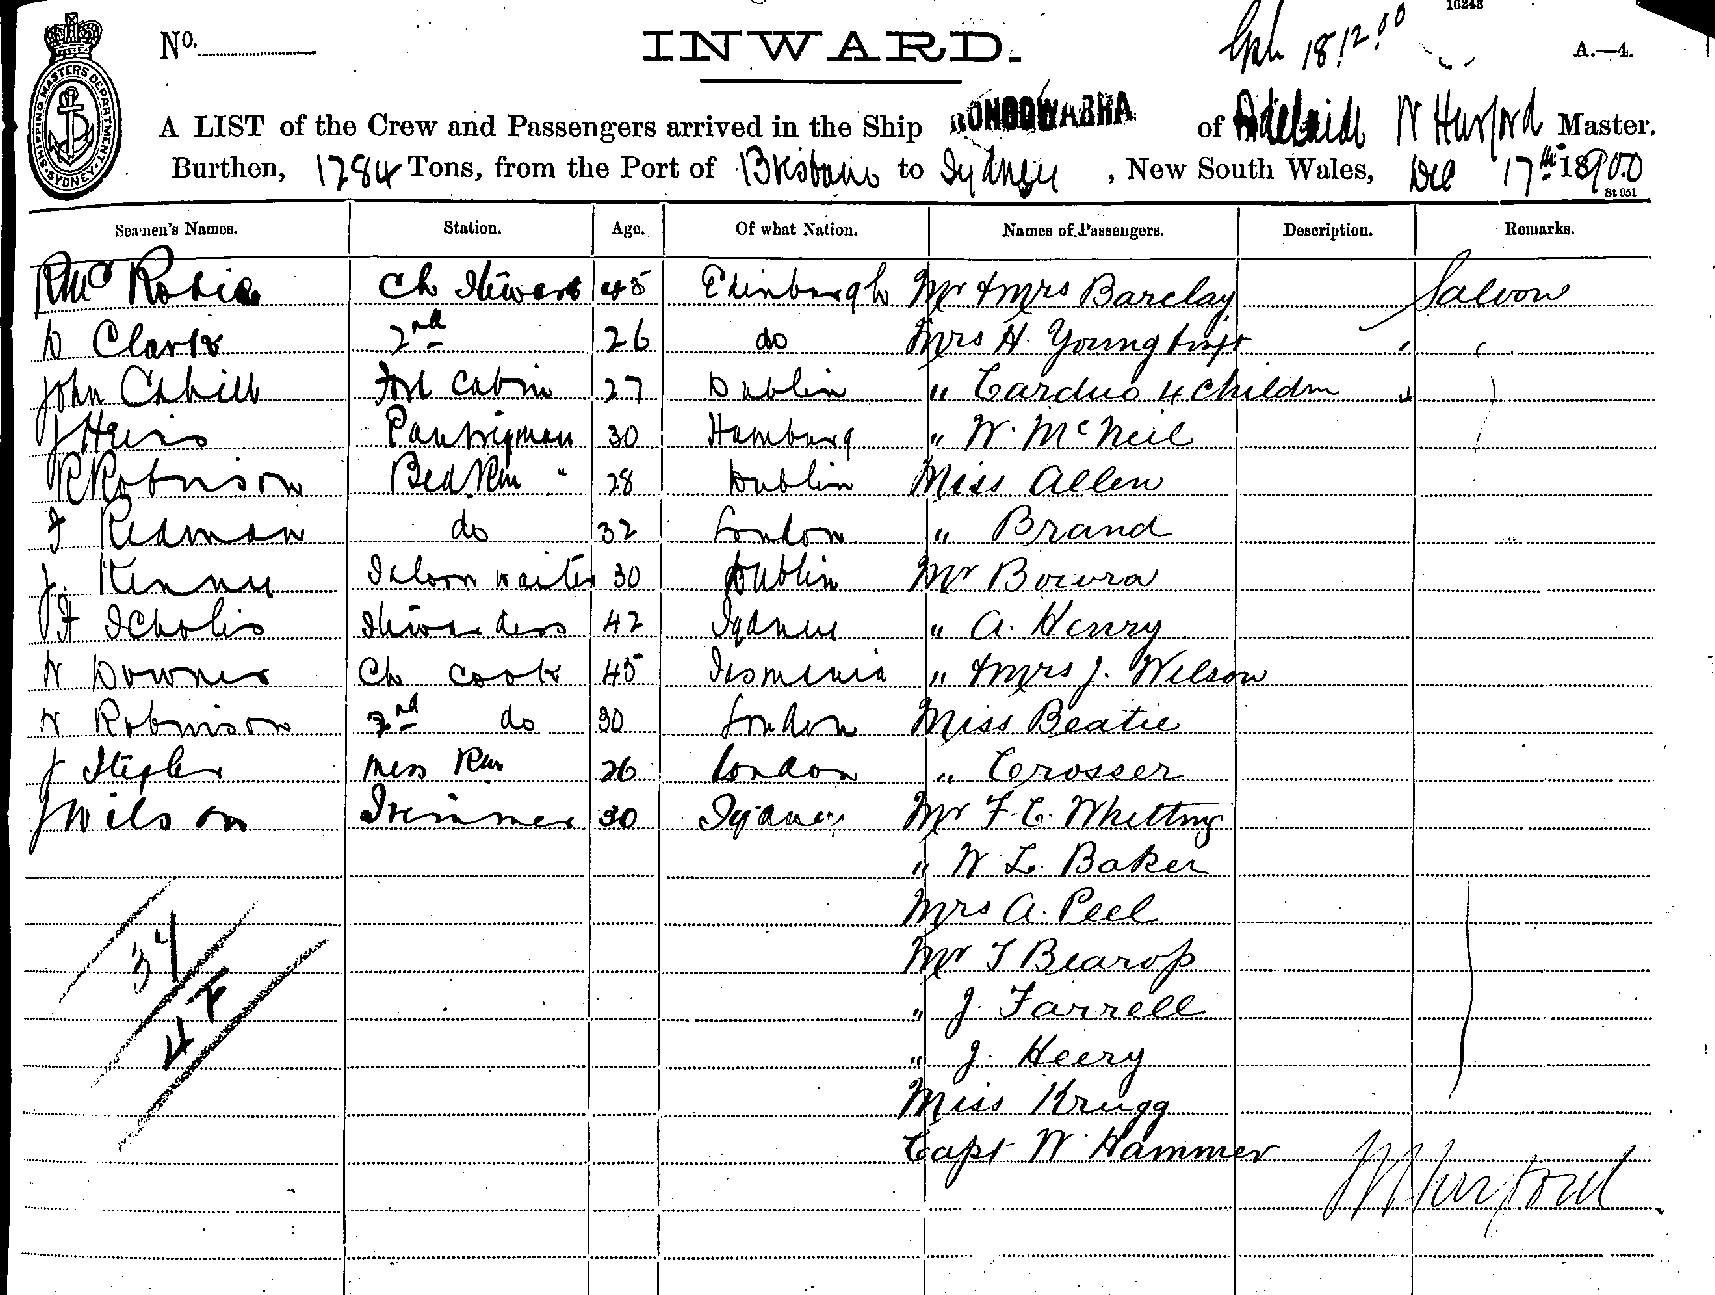 10248
No.
INWARD.
18.12.00
A.—4.
SHIPPING MASTERS DEPARTMENT SYDNEY
A LIST of the Crew and Passengers arrived in the Ship WODONGA of Adelaide W Hurford Master.
Burthen, 1784 Tons, from the Port of Brisbane to Sydney, New South Wales, Dec 17th 1900
St 051
Seamen's Names. Station. Age. Of what Nation. Names of Passengers. Description. Remarks.
R Mc Robie Ch Steward 45 Edinburgh Mr & Mrs Barclay Saloon
D Clark 2nd 26 do Mrs H. Young " "
John Cahill Ford Cabin 27 Dublin " Carduo 4 Childrn "
J Heins Pantryman 30 Hamburg " W. McNeil
R Robinson Bed Rm " 28 Dublin Miss Allen
F Redman do 32 London " Brand
J. Kenny Saloon waiter 30 Dublin Mr Bowra
F Scholes Stewardess 42 Sydney " A. Henry
W Downes Ch Cook 45 Tasmania " & Mrs J. Wilson
W Robinson 2nd do 30 London Miss Beatie
J Mess Rm 26 London " Crosser
J Wilson Trimmer 30 Sydney Mr F. C. Whitting
" W L. Baker
Mrs A. Peel
34
Mr T Bearop
4 F
" J. Farrell
" J. Heery
Miss Krugg
Capt W. Hammer
W Hurford